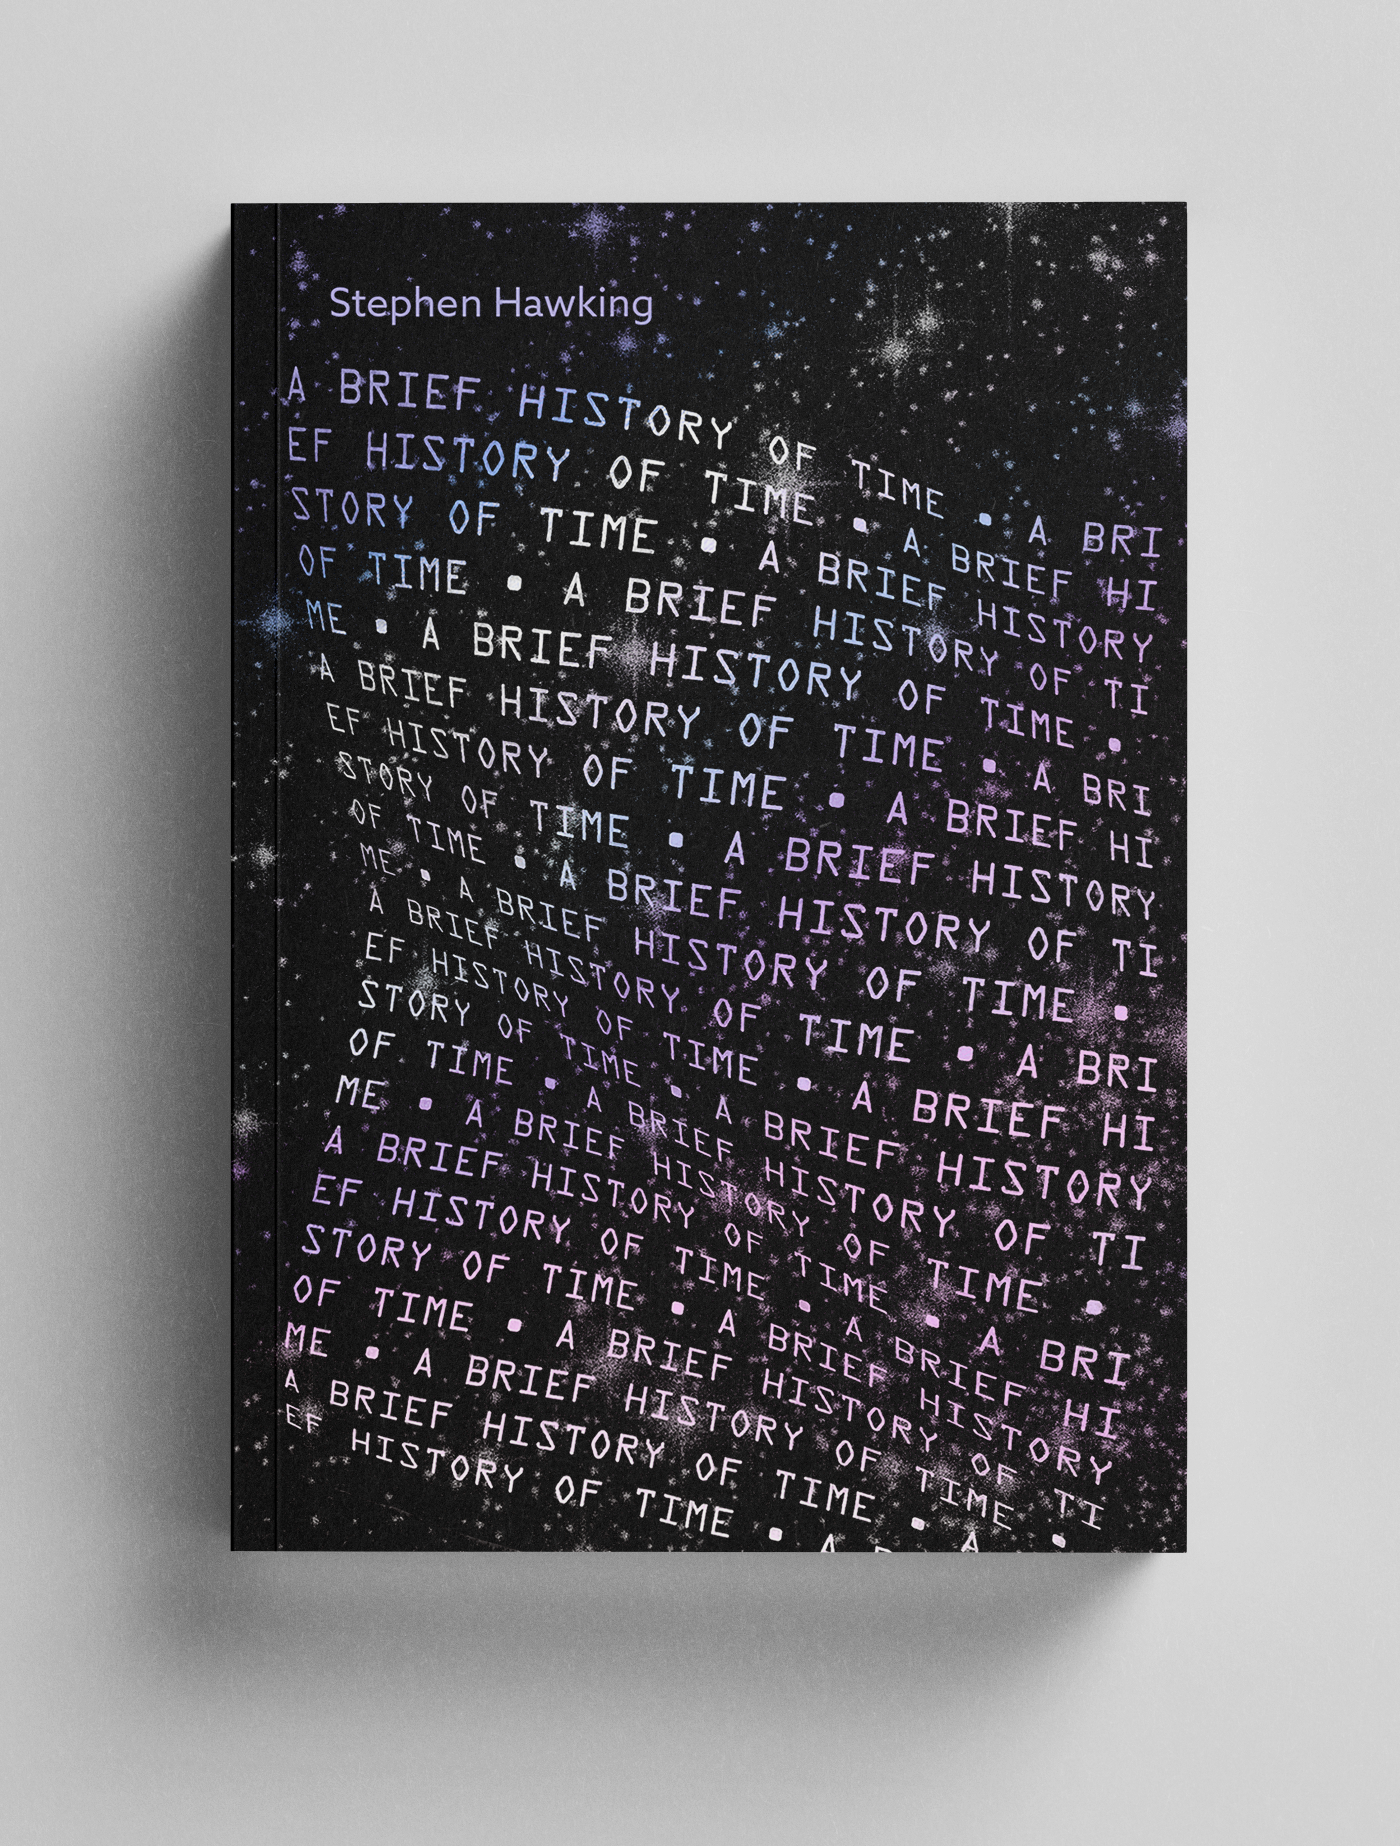 Stephen Hawking
A BRIEF HISTORY OF TIME • A BRI
EF HISTORY OF TIME • A BRIEF HI
STORY OF TIME • A BRIEF HISTORY
OF TIME • A BRIEF HISTORY OF TI
ME • A BRIEF HISTORY OF TIME •
A BRIEF HISTORY OF TIME • A BRI
EF HISTORY OF TIME • A BRIEF HI
STORY OF TIME • A BRIEF HISTORY
OF TIME • A BRIEF HISTORY OF TI
ME • A BRIEF HISTORY OF TIME •
A BRIEF HISTORY OF TIME • A BRI
EF HISTORY OF TIME • A BRIEF HI
STORY OF TIME • A BRIEF HISTORY
OF TIME • A BRIEF HISTORY OF TI
ME • A BRIEF HISTORY OF TIME •
A BRIEF HISTORY OF TIME • A BRI
EF HISTORY OF TIME • A BRIEF HI
STORY OF TIME • A BRIEF HISTORY
OF TIME • A BRIEF HISTORY OF TI
ME • A BRIEF HISTORY OF TIME •
A BRIEF HISTORY OF TIME • A
EF HISTORY OF TIME • A